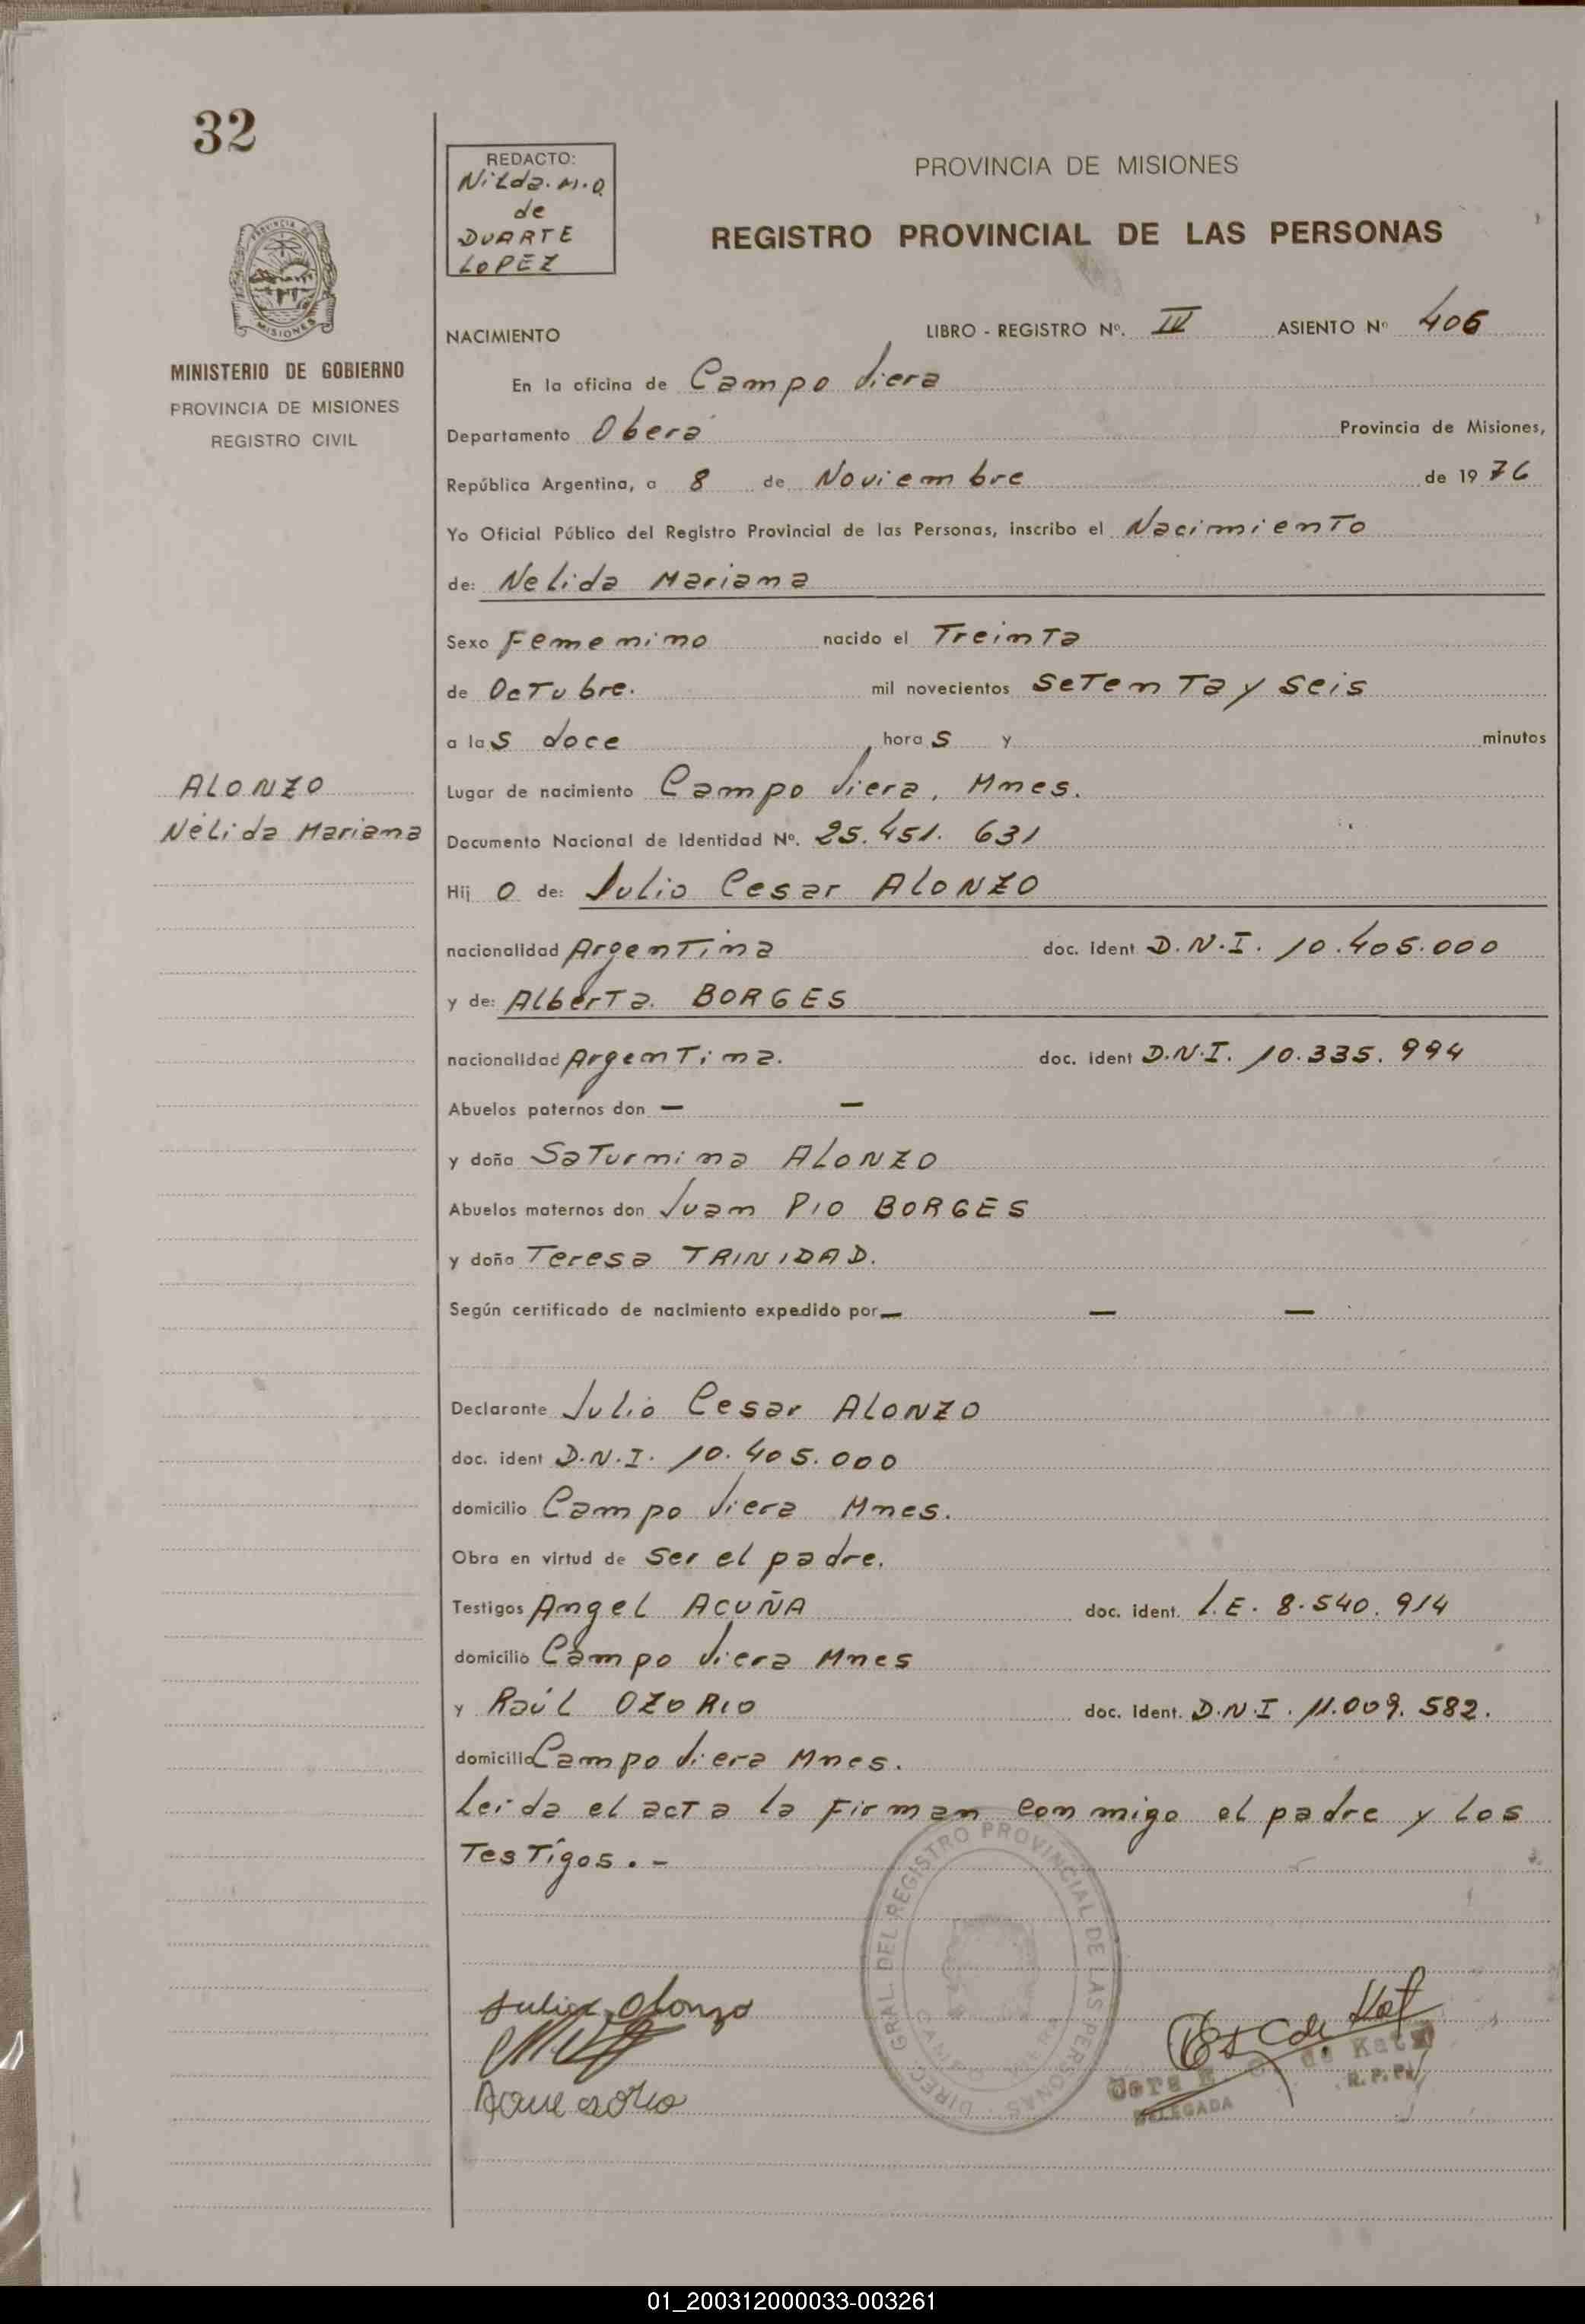 32
REDACTO:
Nilda. M. O.
de
DUARTE
LOPEZ
PROVINCIA DE MISIONES
REGISTRO PROVINCIAL DE LAS PERSONAS
MISIONES
MINISTERIO DE GOBIERNO
PROVINCIA DE MISIONES
REGISTRO CIVIL
NACIMIENTO LIBRO - REGISTRO Nº. IV ASIENTO Nº 406
En la oficina de Campo Viera
Departamento Oberá Provincia de Misiones,
República Argentina, a 8 de Noviembre de 1976
Yo Oficial Público del Registro Provincial de las Personas, inscribo el Nacimiento
de: Nelida Mariana
Sexo Femenino nacido el Treinta
de Octubre. mil novecientos setenta y seis
a las doce horas y minutos
ALONZO
Nélida Mariana
Lugar de nacimiento Campo Viera, Mnes.
Documento Nacional de Identidad Nº. 25.451.631
Hijo de: Julio Cesar ALONZO
nacionalidad Argentina doc. ident D.N.I. 10.405.000
y de: Alberta. BORGES
nacionalidad Argentina. doc. ident D.N.I. 10.335.994
Abuelos paternos don — —
y doña Saturnina ALONZO
Abuelos maternos don Juan PIO BORGES
y doña Teresa TRINIDAD.
Según certificado de nacimiento expedido por — — —
Declarante Julio Cesar ALONZO
doc. ident D.N.I. 10.405.000
domicilio Campo Viera Mnes.
Obra en virtud de ser el padre.
Testigos Angel ACUÑA doc. ident. L.E. 8.540.914
domicilio Campo Viera Mnes
y Raúl OZORIO doc. ident. D.N.I. 11.009.582.
domicilio Campo Viera Mnes.
Leida el acta la firman conmigo el padre y los
Testigos. -
DIREC. GRAL. DEL REGISTRO PROVINCIAL DE LAS PERSONAS
Alonzo
de Katz
R.P.P.
DELEGADA
01_200312000033-003261